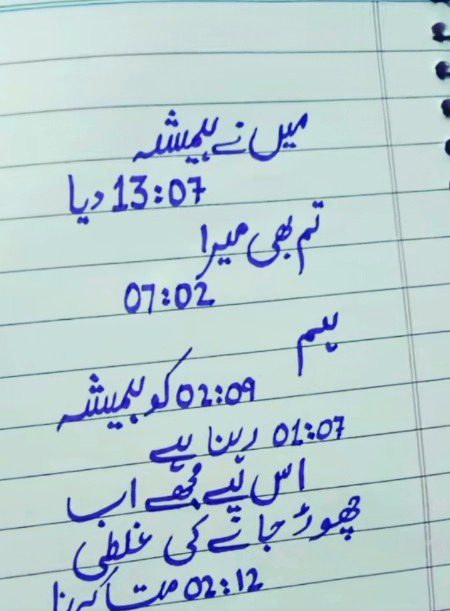 میں نے ہمیشہ
13:07 دیا
تم بھی میرا
07:02
ہم
02:09 کو ہمیشہ
01:07 رہنا ہے
اس لیے مجھے اب
چھوڑ جانے کی غلطی
02:12 مت کرنا